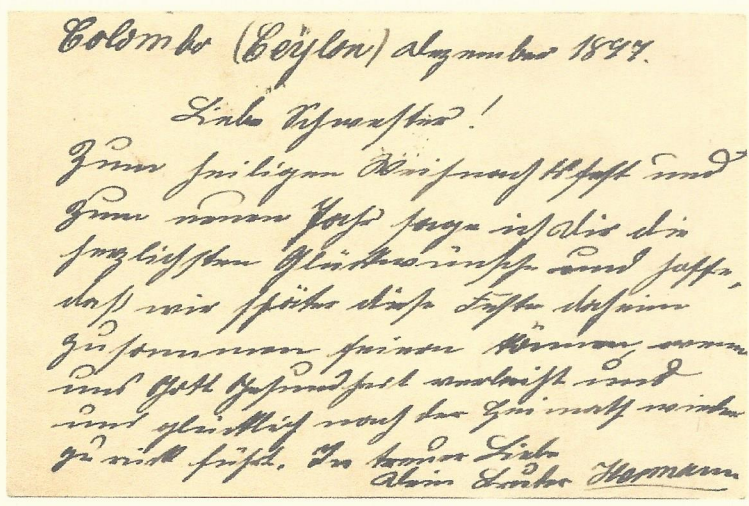 Colombo (Ceÿlon) Dezember 1897.
Liebe Schwester!
Zum heiligen Weihnachtsfest und
zum neuen Jahr sage ich Dir die
herzlichsten Glückwünsche und hoffe,
daß wir später diese Feste daheim
zusammen feiern können, wenn
uns Gott Gesundheit verleiht und
uns glücklich nach der Heimath wieder
zurück führt. In treuer Liebe
Dein Bruder Hermann